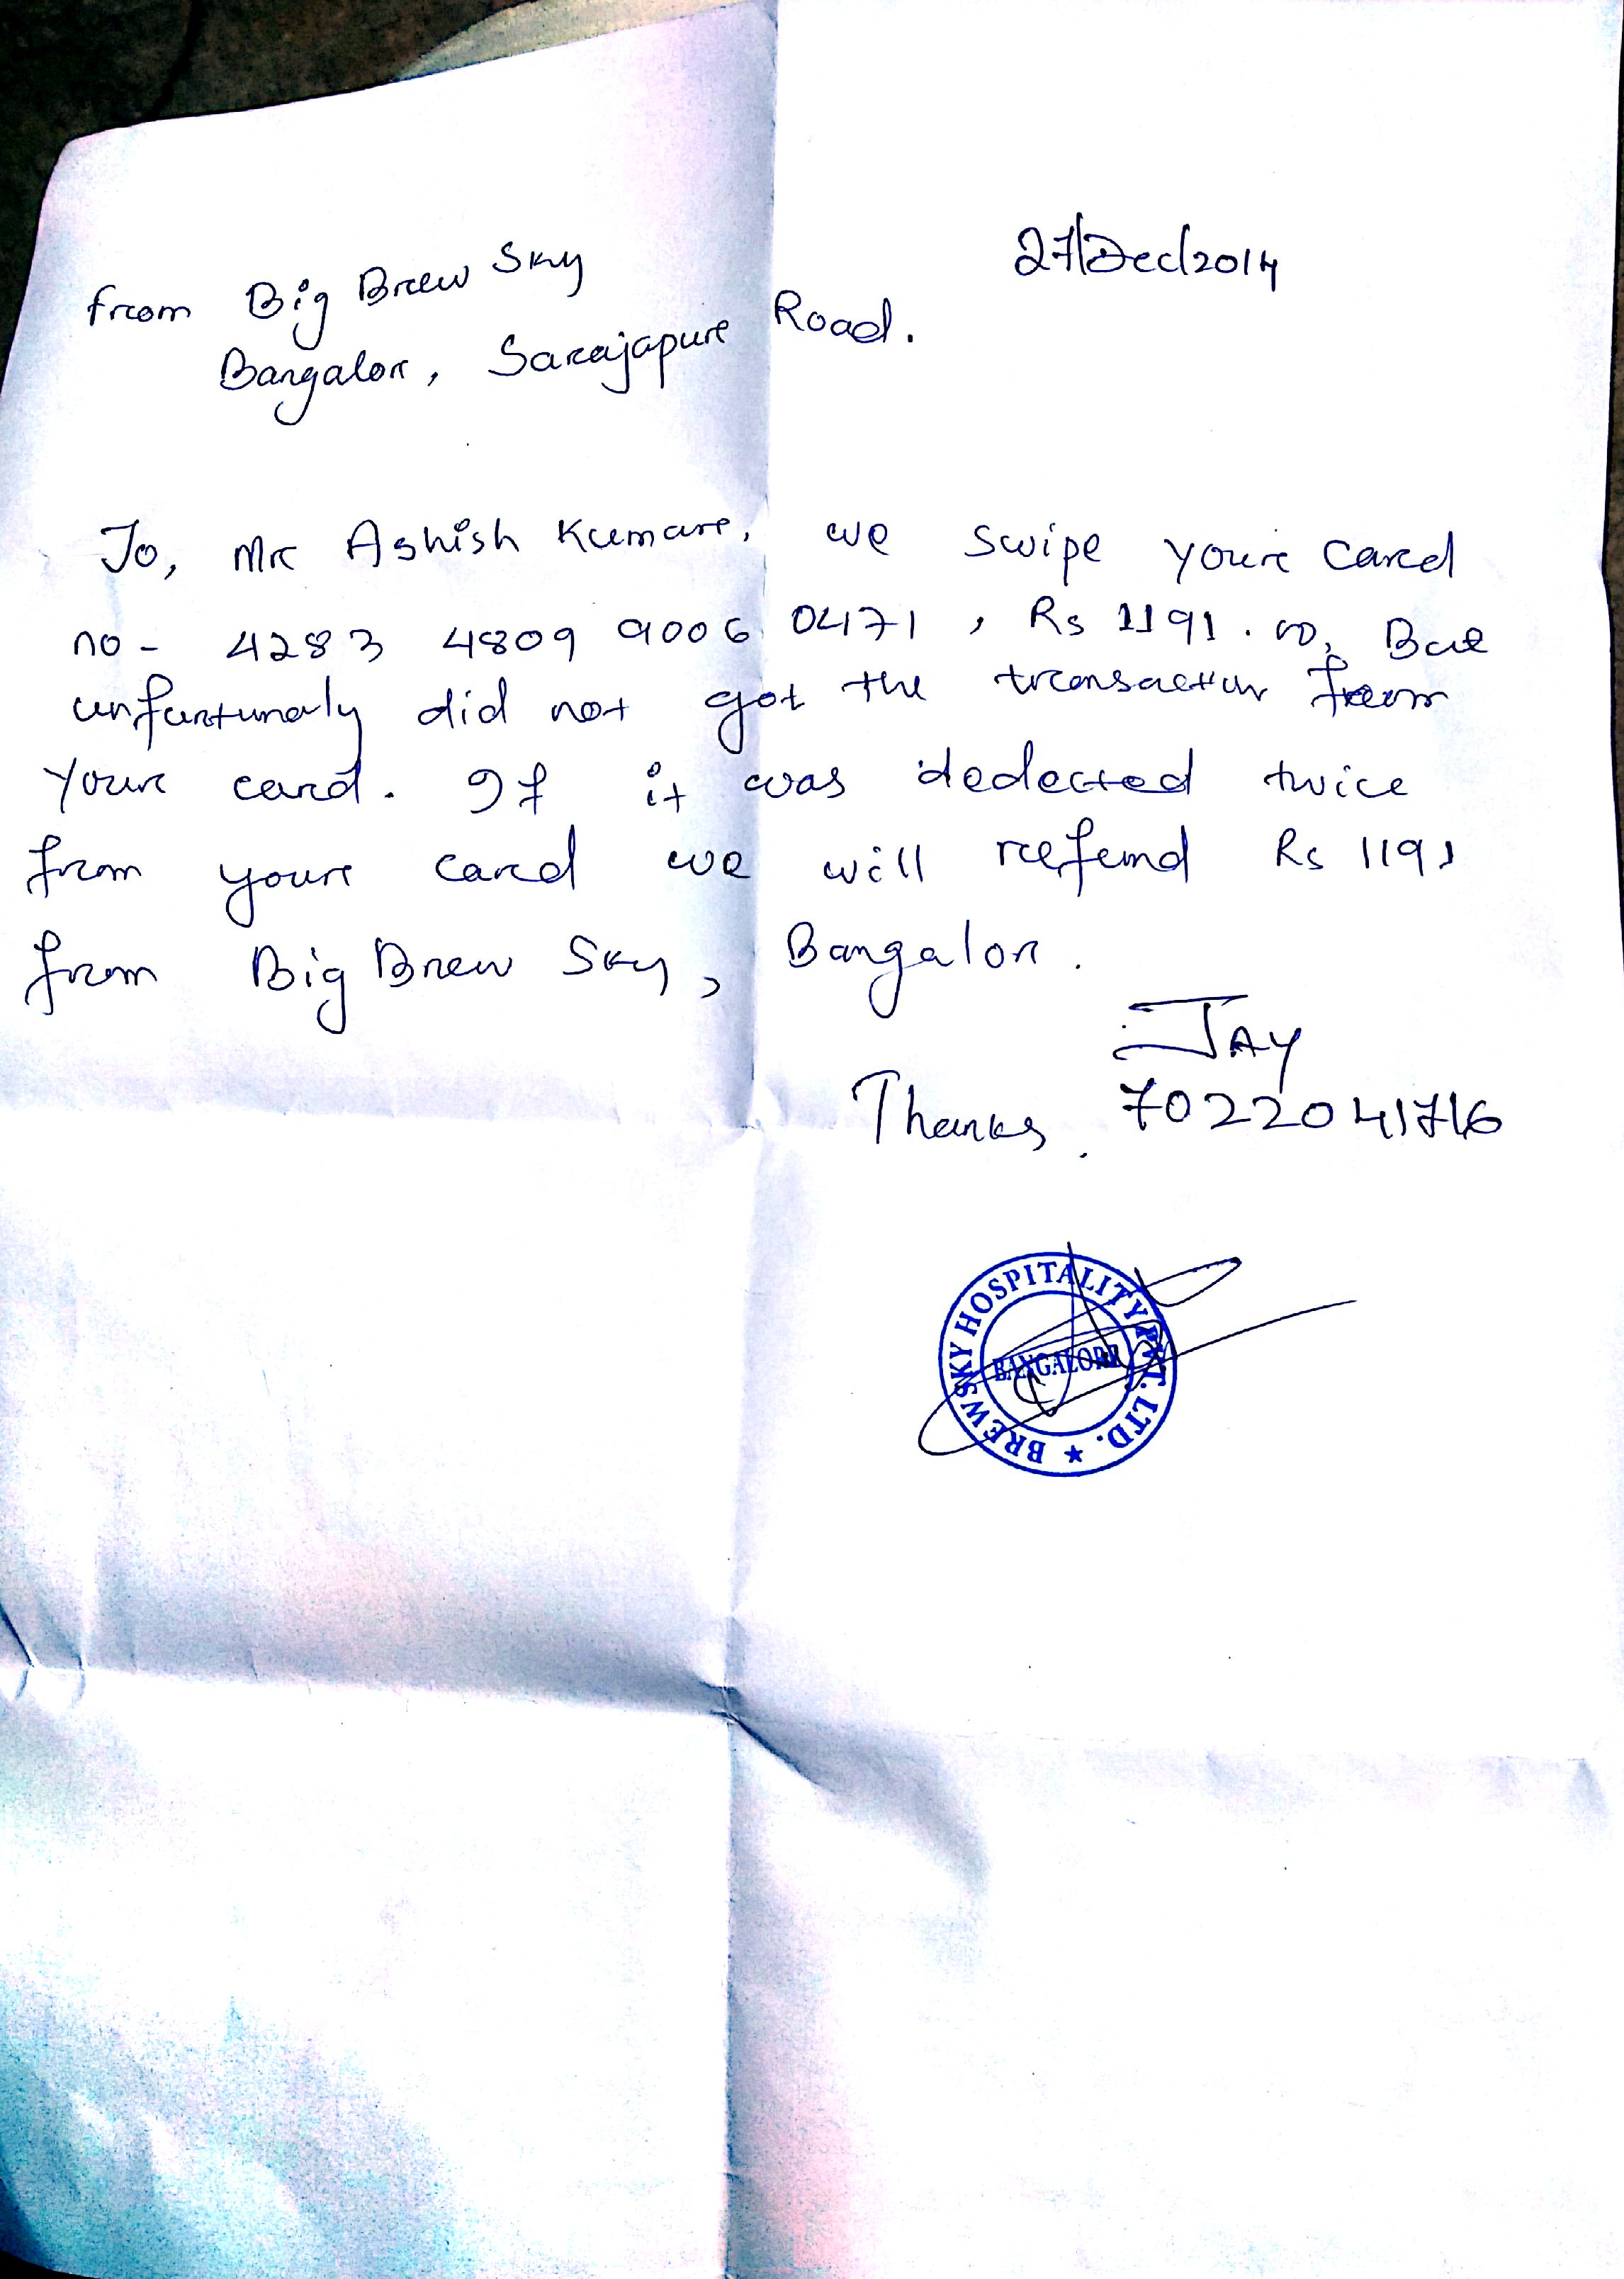 27/Dec/2014
from Big Brew Sky
Bangalor, Sarajapur Road.
To, Mr Ashish Kumar, we swipe your card
no - 4283 4809 9006 0471, Rs 1191.00, But
unfurtunaly did not got the transaction from
your card. If it was deducted twice
from your card we will refund Rs 1191
from Big Brew Sky, Bangalor.
JAY
Thanks. 7022041716
BREWSKY HOSPITALITY PVT. LTD.
BANGALORE